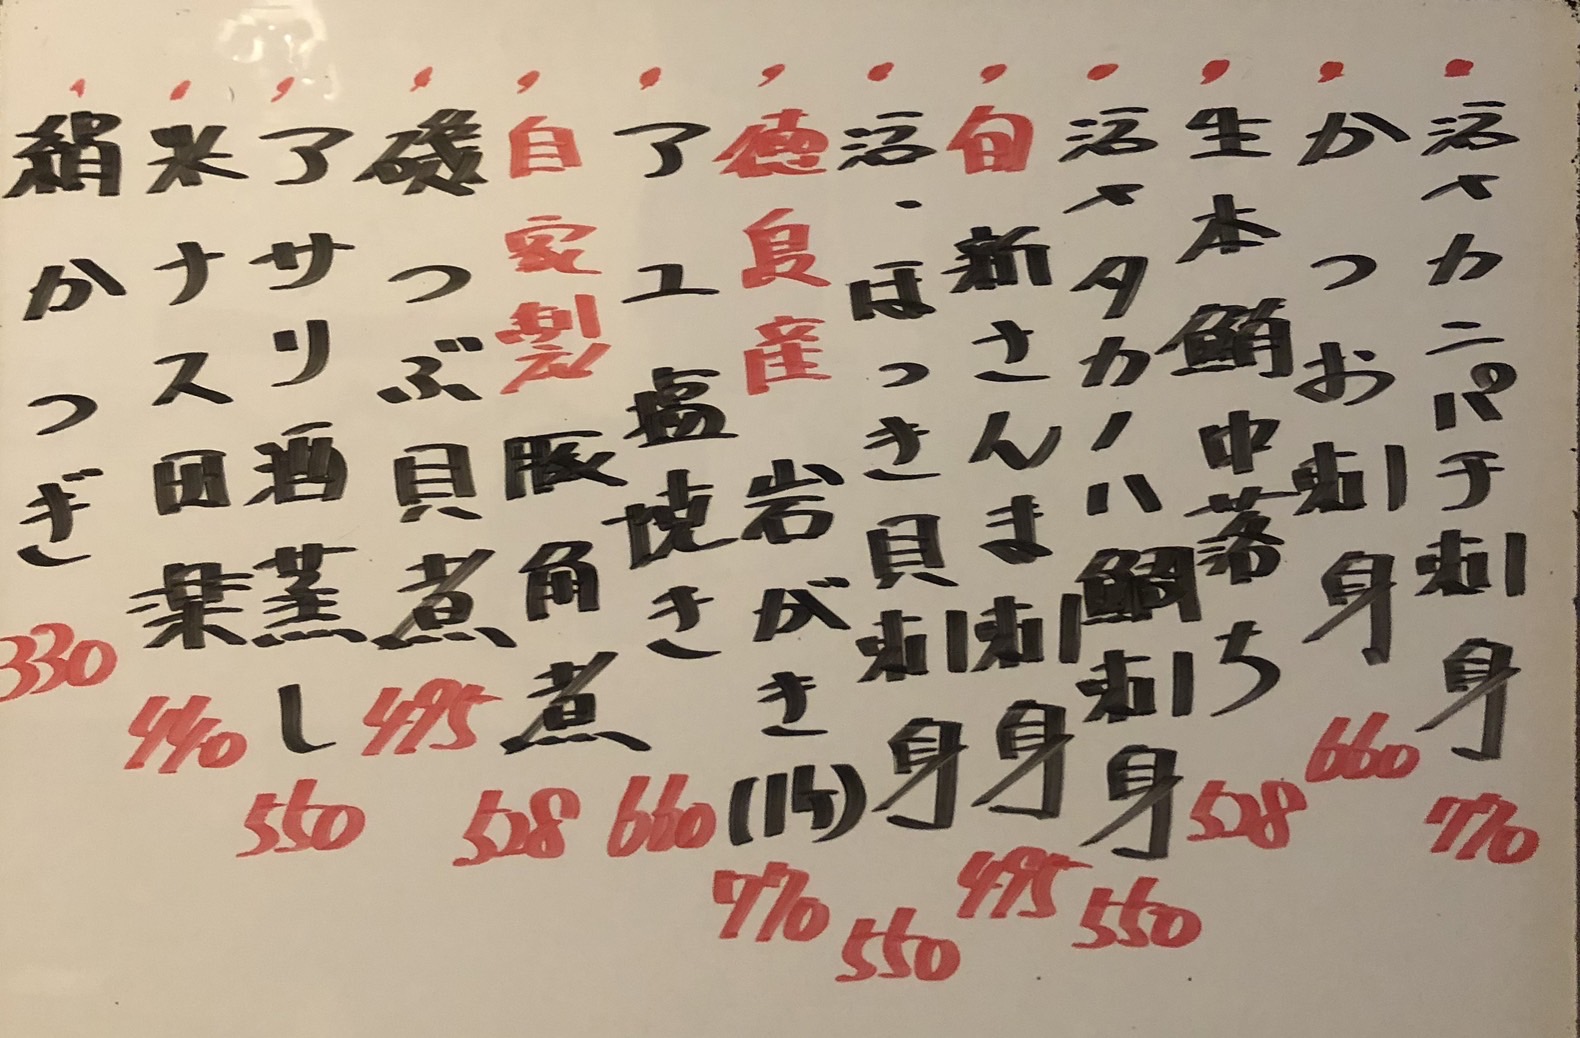 ・活〆カンパチ刺身 770
・かつお刺身 660
・生本鮪中落ち 528
・活〆タカノハ鯛刺身 550
・旬 新さんま刺身 495
・活・ほっき貝刺身 550
・徳島産 岩がき(1ケ) 770
・アユ塩焼き 660
・自家製 豚角煮 528
・磯つぶ貝煮 495
・アサリ酒蒸し 550
・米ナス田楽 440
・絹かつぎ 330